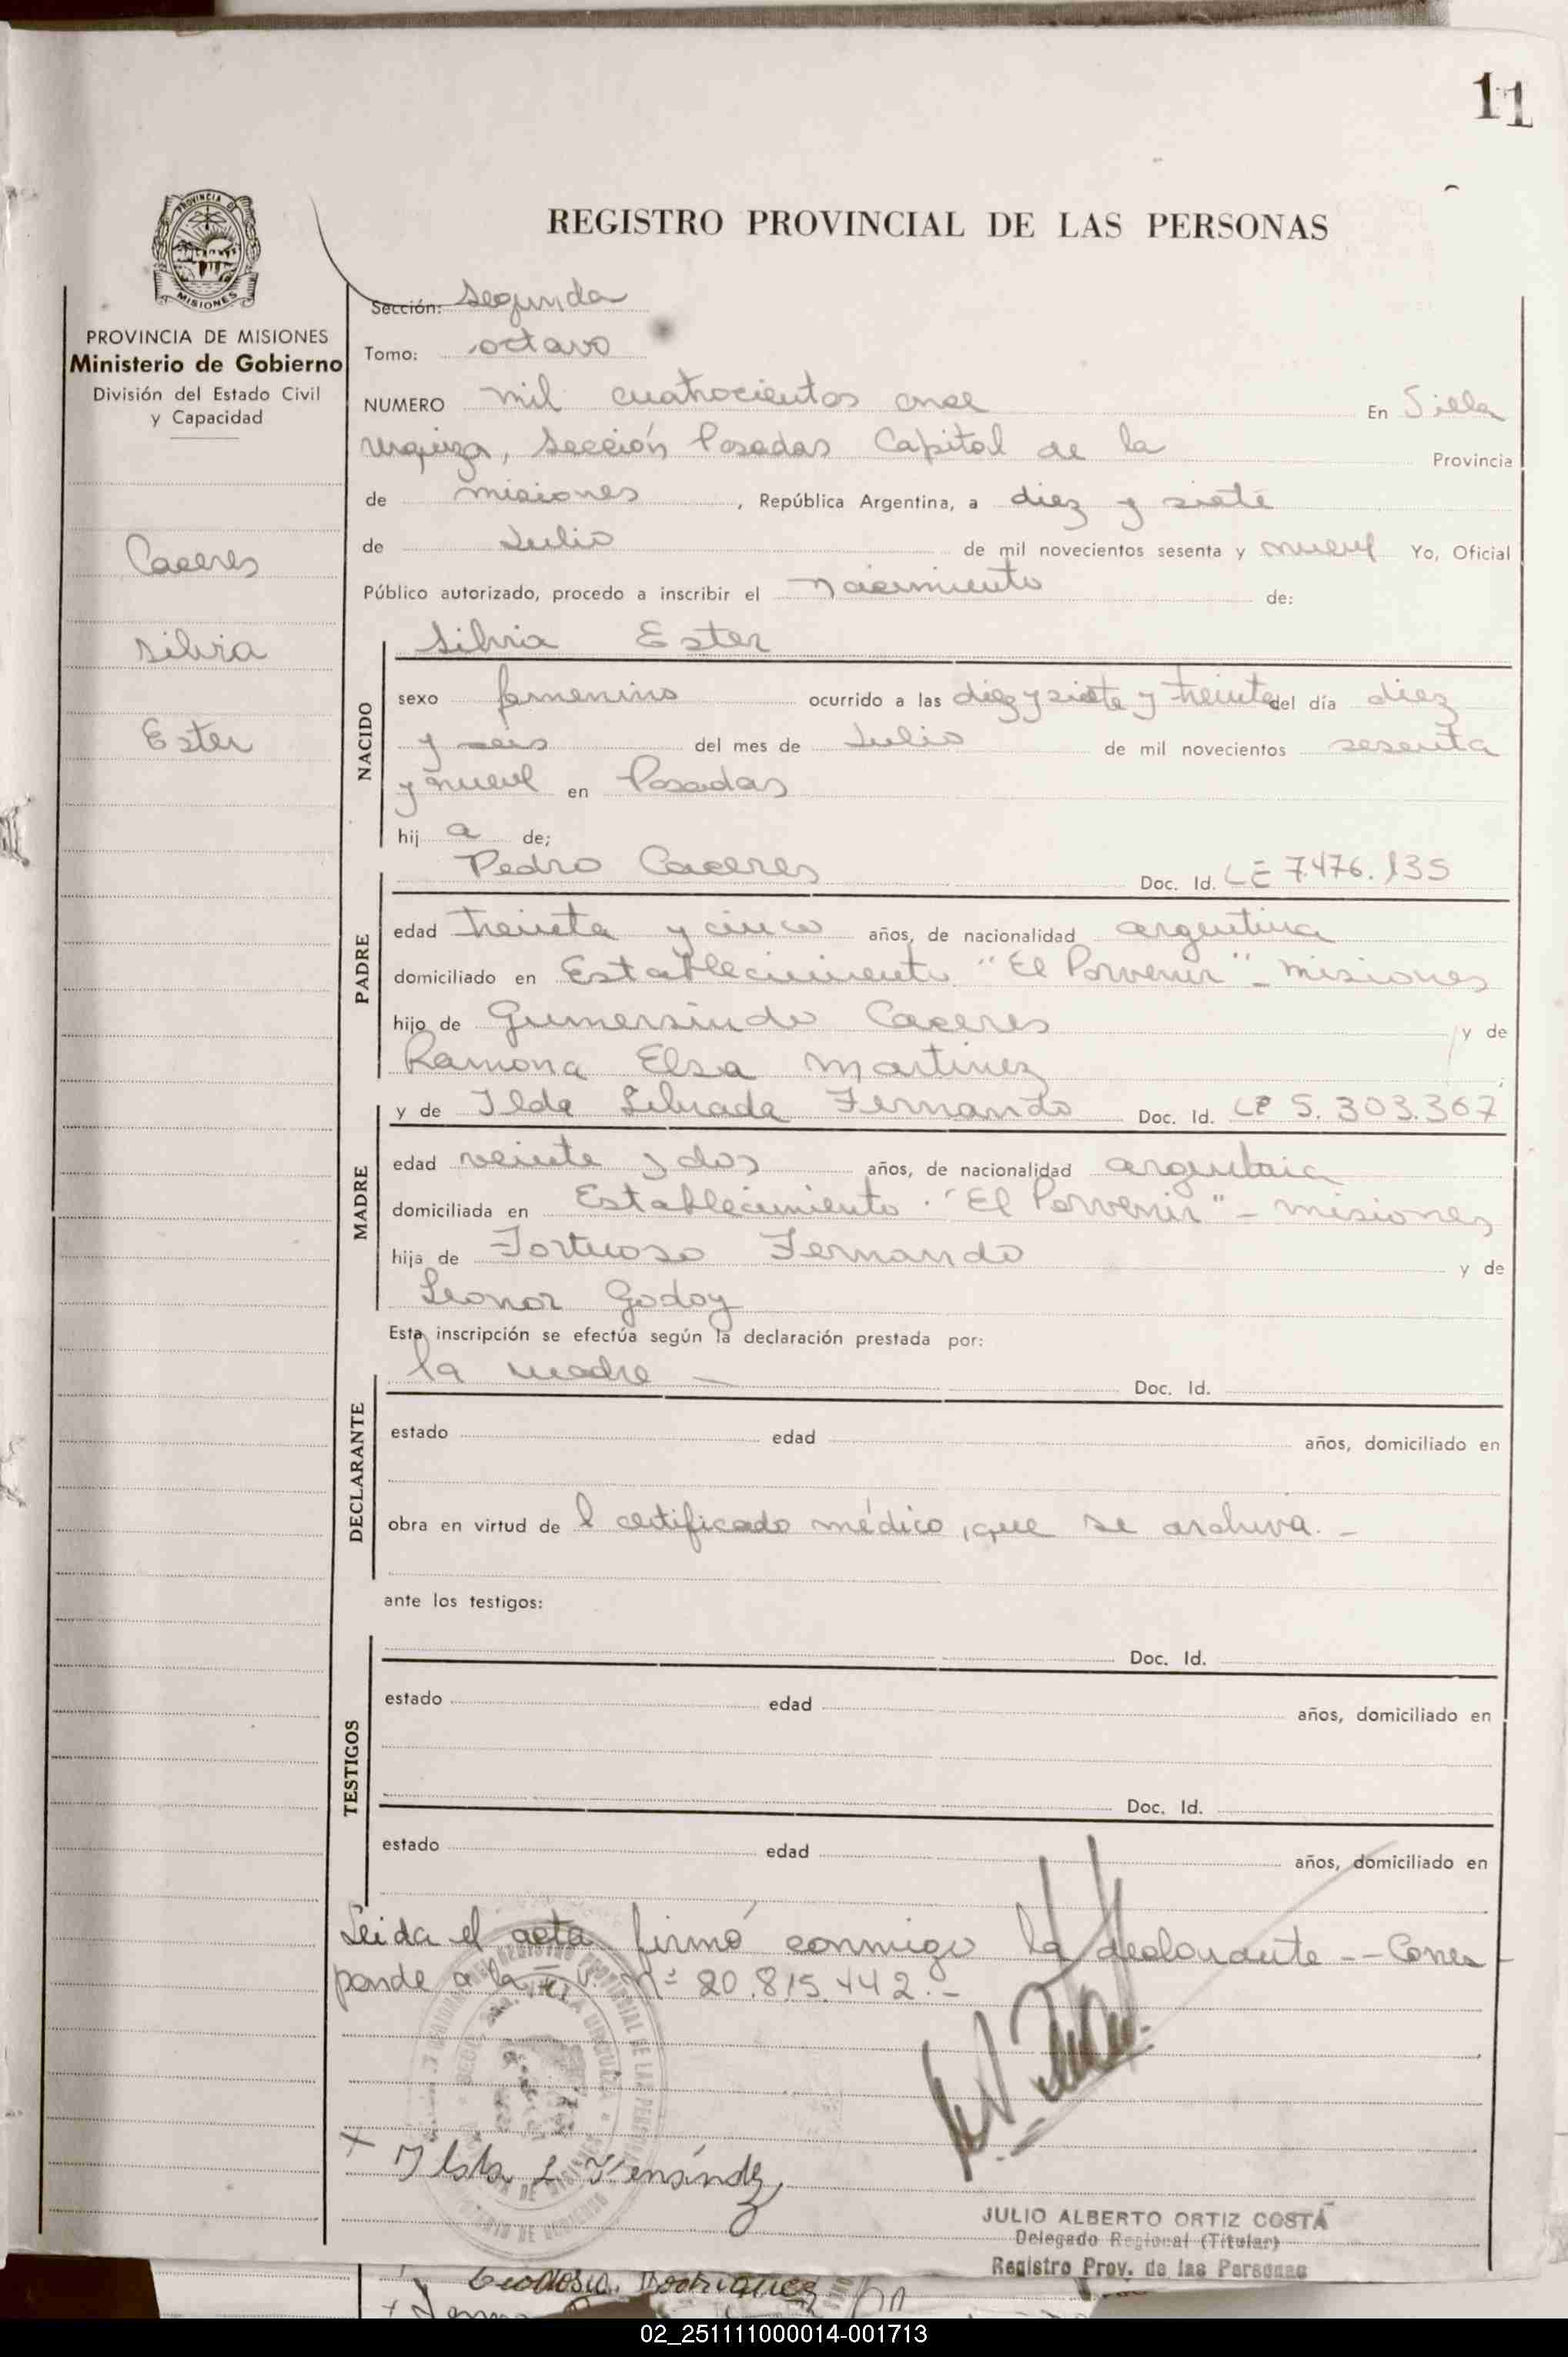 11
PROVINCIA DE
MISIONES
REGISTRO PROVINCIAL DE LAS PERSONAS
PROVINCIA DE MISIONES
Ministerio de Gobierno
División del Estado Civil
y Capacidad
Caceres
Silvia
Ester
Sección: Segunda
Tomo: octavo
NUMERO mil cuatrocientos once En Villa
Urquiza, Sección Posadas Capital de la Provincia
de misiones, República Argentina, a diez y siete
de Julio de mil novecientos sesenta y nueve Yo, Oficial
Público autorizado, procedo a inscribir el nacimiento de:
NACIDO
Silvia Ester
sexo femenino ocurrido a las diez y siete y treinta del día diez
y seis del mes de Julio de mil novecientos sesenta
y nueve en Posadas
hij a de;
PADRE
Pedro Caceres Doc. Id. LE 7.476.135
edad treinta y cinco años, de nacionalidad argentina
domiciliado en Establecimiento "El Porvenir" - misiones
hijo de Gumersindo Caceres y de
Ramona Elsa Martinez
MADRE
y de Ilda Librada Fernando Doc. Id. 5.303.367
edad veinte y dos años, de nacionalidad argentina
domiciliada en Establecimiento "El Porvenir" - misiones
hija de Fortuoso Fernando y de
Leonor Godoy
Esta inscripción se efectúa según la declaración prestada por:
DECLARANTE
la madre - Doc. Id.
estado edad años, domiciliado en
obra en virtud de l certificado médico, que se archiva. -
ante los testigos:
TESTIGOS
Doc. Id.
estado edad años, domiciliado en
Doc. Id.
estado edad años, domiciliado en
Leida el acta firmó conmigo la declarante -- Corres-
ponde a la Nº 20.815.442.-
JULIO ALBERTO ORTIZ COSTÁ
Delegado Regional (Titular)
Registro Prov. de las Personas
02_251111000014-001713